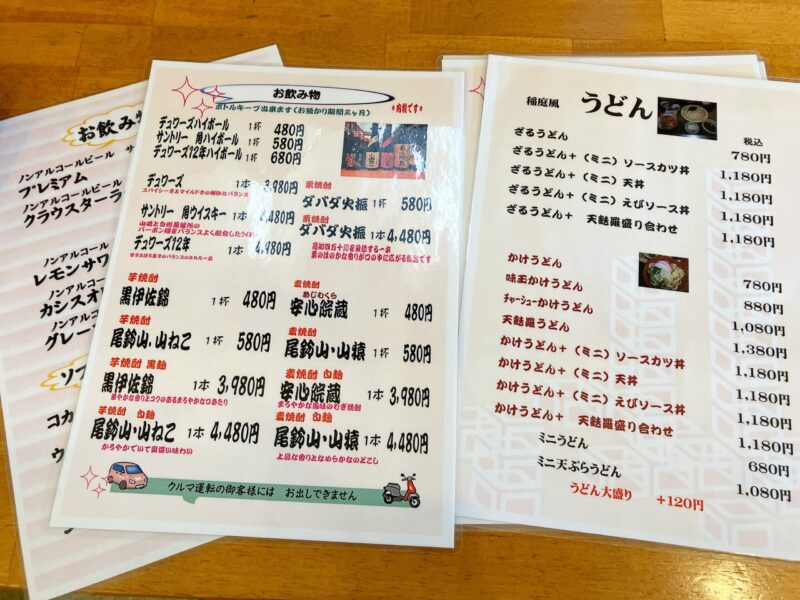 お飲み物
ノンアルコールビール サ
プレミアム
ノンアルコールビール
クラウスターラ
ノンアルコール
レモンサワ
ノンアルコール
カシスオ
ノンアルコール
グレー
ソフ
コカ
ウ
お飲み物
ボトルキープ出来ます(お預かり期間三ヶ月)
*内税です*
デュワーズハイボール 1杯 480円
サントリー 角ハイボール 1杯 580円
デュワーズ12年ハイボール 1杯 680円
デュワーズ 1本 3,980円
スパイシーさとマイルドさの絶妙なバランス
サントリー 角ウイスキー 1本 4,480円
デュワーズ12年 1本 4,980円
甘さとほろ苦さのバランスのとれた一品
栗焼酎
ダバダ火振 1杯 580円
栗焼酎
ダバダ火振 1本 4,480円
高知四万十川を栄造する一本
栗の味のほのかな香りが口の中に広がる製法です
芋焼酎
黒伊佐錦 1杯 480円
芋焼酎
尾鈴山・山ねこ 1杯 580円
芋焼酎 黒麹
黒伊佐錦 1本 3,980円
華やかな香りとコクのあるまろやかな口あたり
芋焼酎 白麹
尾鈴山・山ねこ 1本 4,480円
かろやかでいて奥深い味わい
麦焼酎
あじむくら
安心院蔵 1杯 480円
麦焼酎
尾鈴山・山猿 1杯 580円
麦焼酎 白麹
安心院蔵 1本 3,980円
まろやかな風味のむぎ焼酎
麦焼酎 白麹
尾鈴山・山猿 1本 4,480円
上品な香りとなめらかなのどごし
クルマ運転の御客様には お出しできません
稲庭風 うどん
税込
ざるうどん 780円
ざるうどん+(ミニ)ソースカツ丼 1,180円
ざるうどん+(ミニ)天丼 1,180円
ざるうどん+(ミニ)えびソース丼 1,180円
ざるうどん+ 天麩羅盛り合わせ 1,180円
かけうどん 780円
味玉かけうどん 880円
チャーシューかけうどん 1,080円
天麩羅うどん 1,380円
かけうどん+(ミニ)ソースカツ丼 1,180円
かけうどん+(ミニ)天丼 1,180円
かけうどん+(ミニ)えびソース丼 1,180円
かけうどん+ 天麩羅盛り合わせ 1,180円
ミニうどん 680円
ミニ天ぷらうどん 1,080円
うどん大盛り +120円